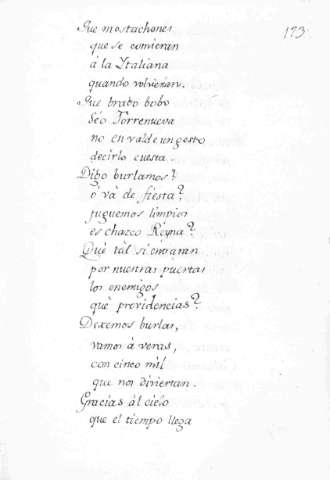 173
Que mostachones
que se comieran
á la Ytaliana
quando volvieran.
Que brabo bobo
Séo Torrenueva
no en valde un gesto
decirlo cuesta.
Digo burlamos?
ó vá de fiesta?
juguemos limpios
es chasco Reyna?
Què tál si entraran
por nuestras puertas
los enemigos
què providencias?
Dexemos burlas,
vamos à veras,
con cinco mil
que nos diviertan.
Gracias ál cielo
que el tiempo llega